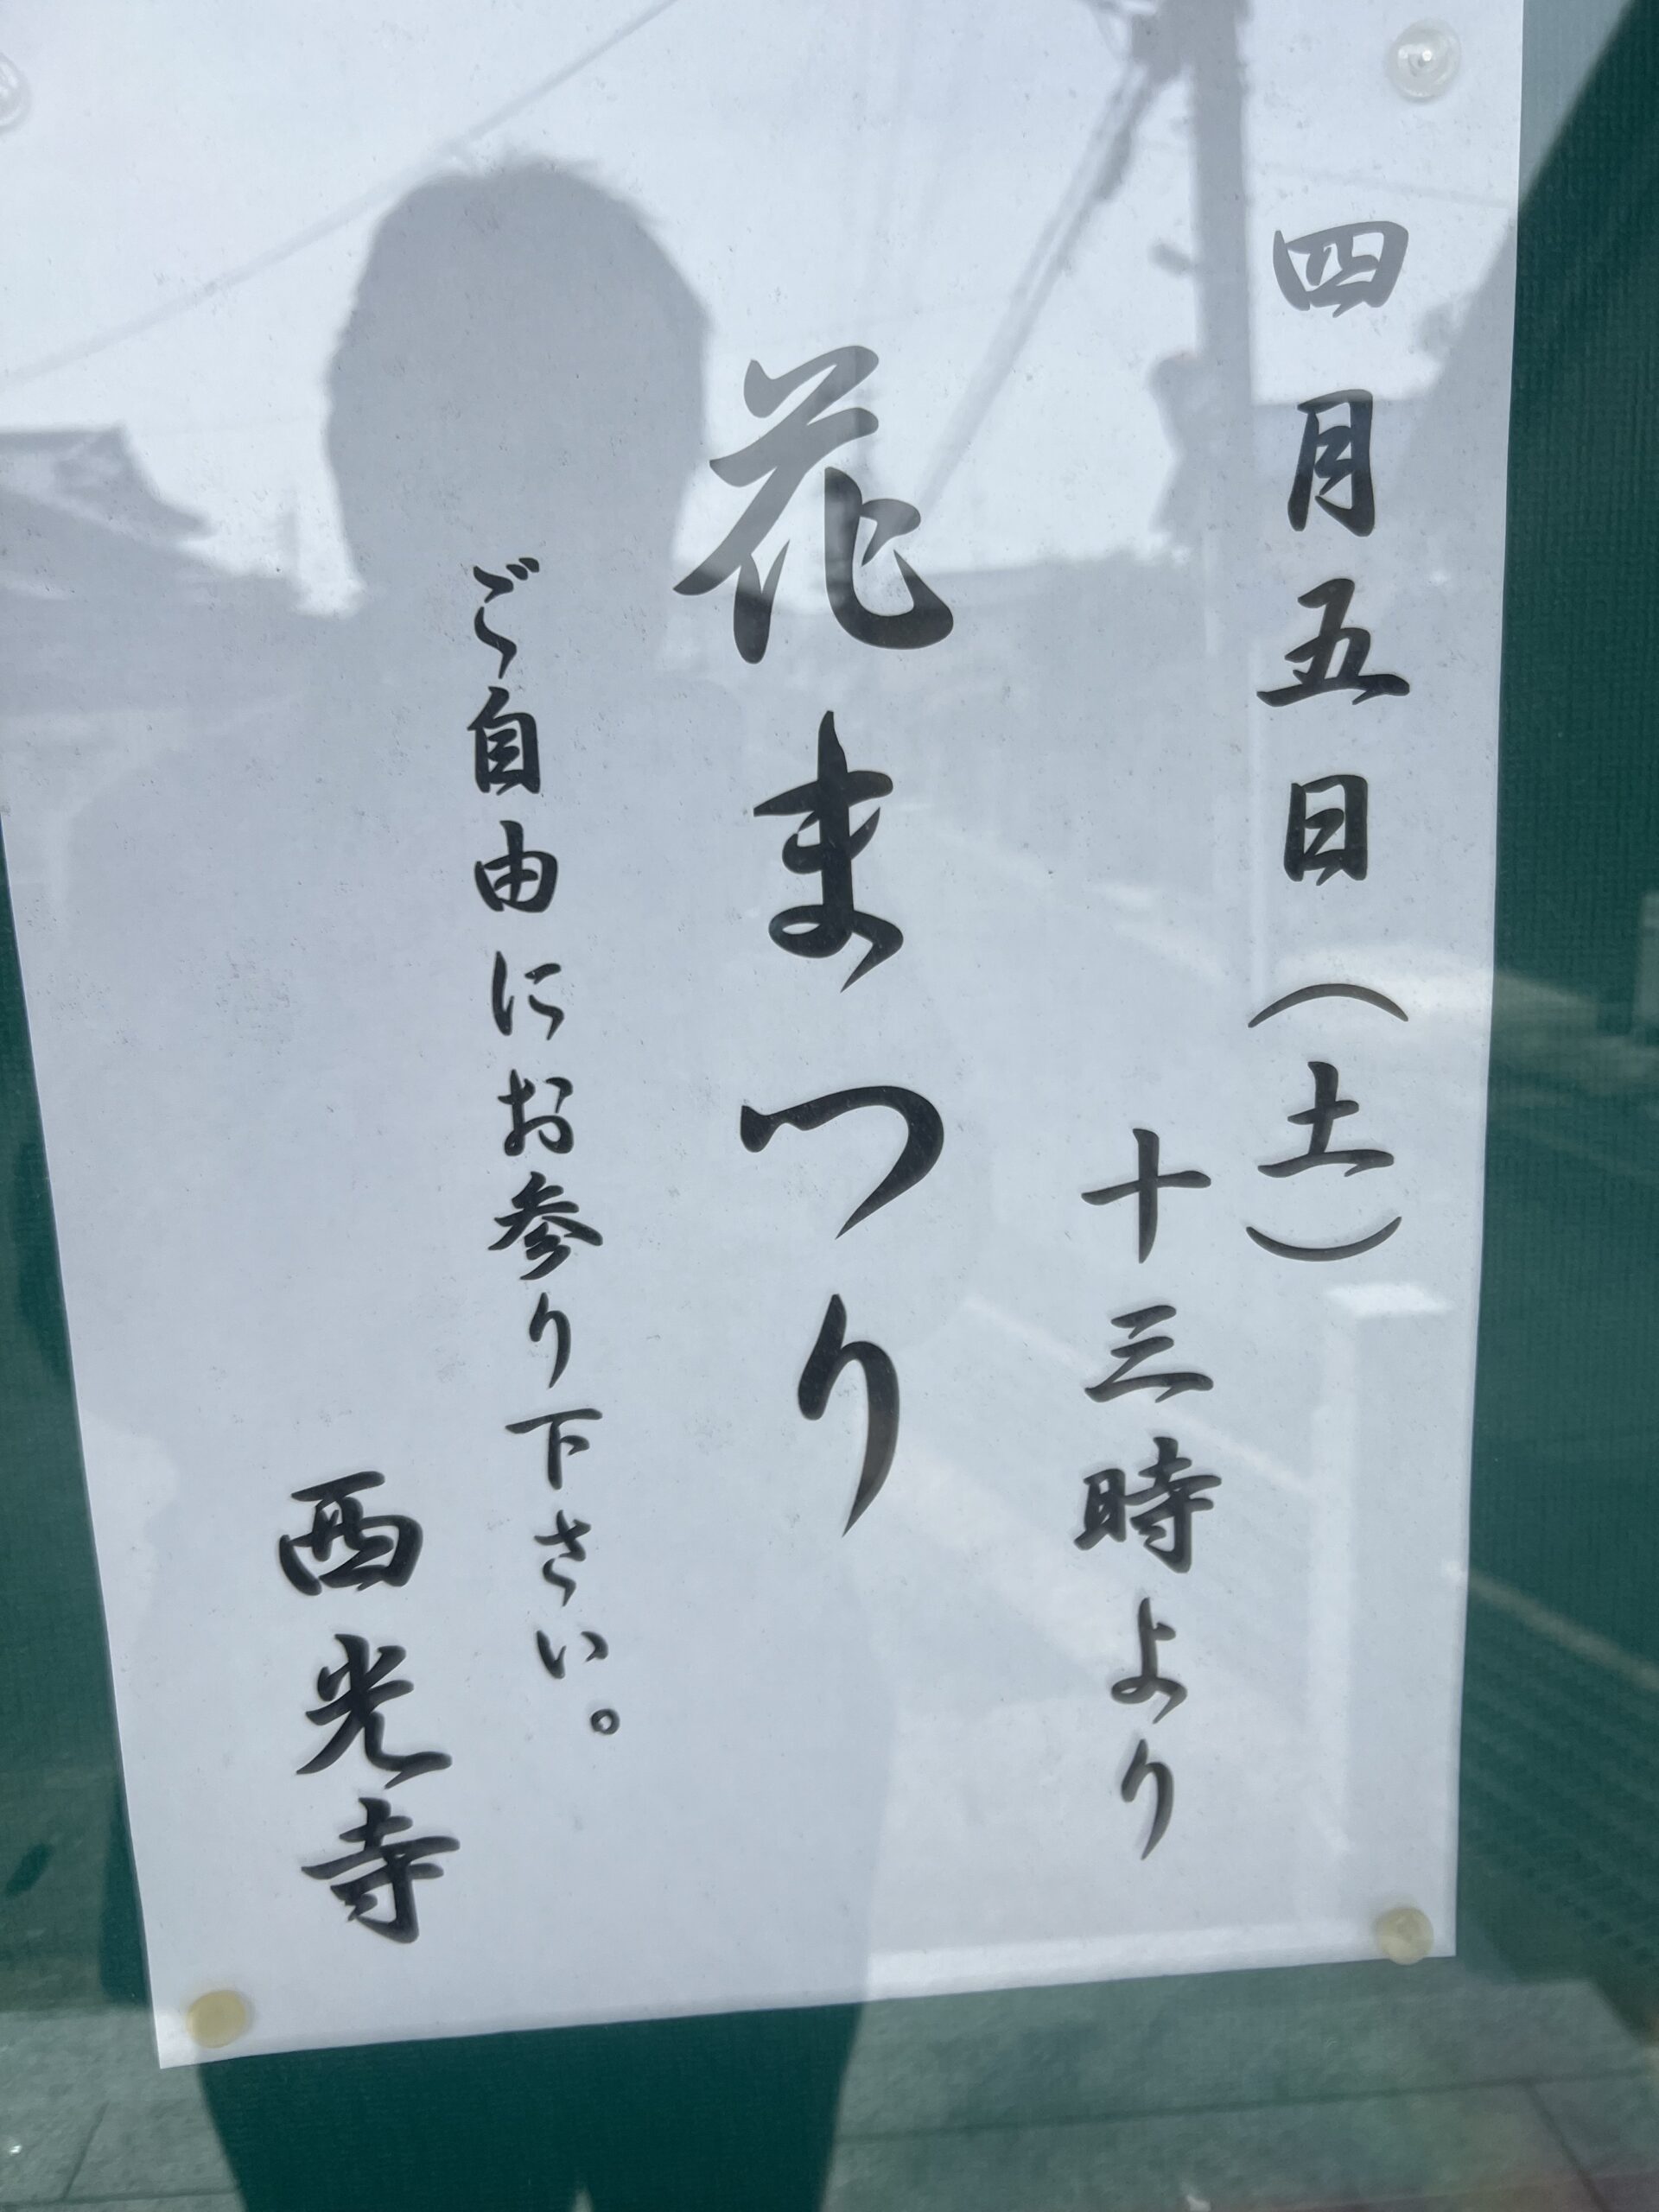 四月五日（土）
十三時より
花まつり
ご自由にお参り下さい。
西光寺